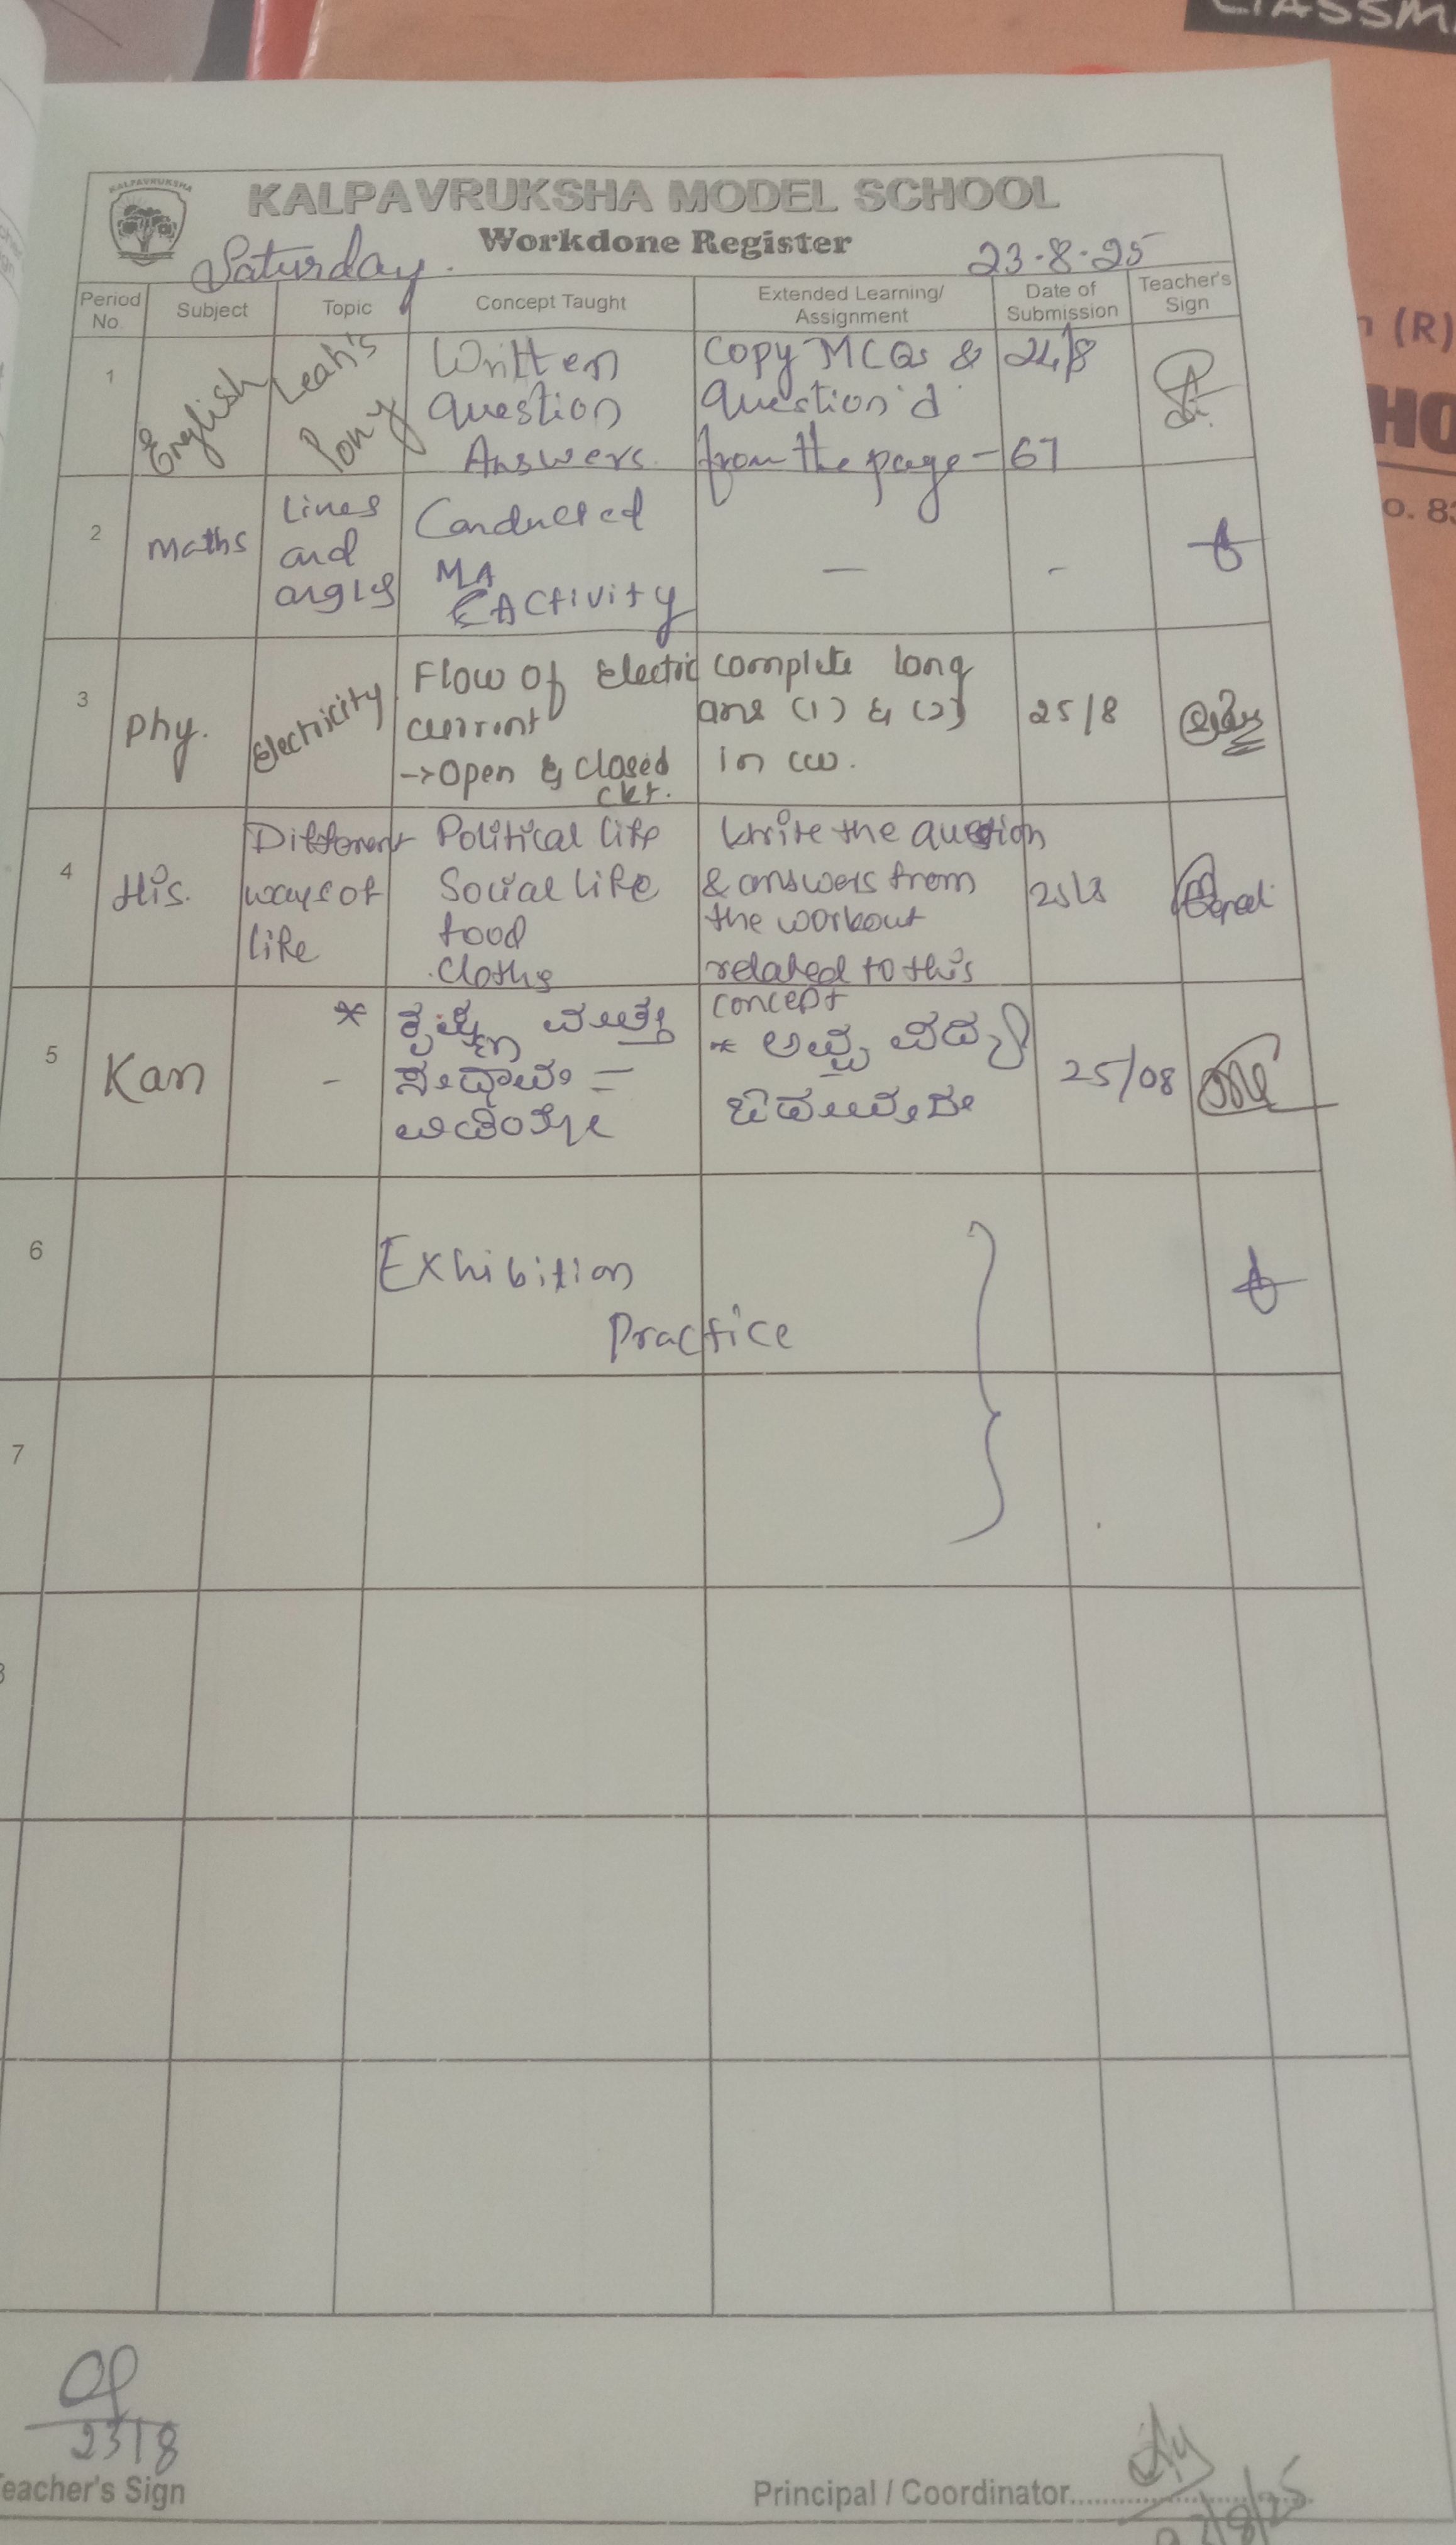 CLASSM
(R)
HO
o. 83
KALPAVRUKSHA
KALPAVRUKSHA MODEL SCHOOL
Workdone Register
Saturday. 23-8-25
Period No. Subject Topic Concept Taught Extended Learning/ Assignment Date of Submission Teacher's Sign
1 English Leah's Pony Written Copy MCQs & 24/8
question Question'd
Answers. from the page - 67
2 Maths Lines Conducted
and MA — -
angles Activity
3 Phy. Electricity Flow of Electric complete long
current ans (1) & (2) 25/8
→ Open & closed in cw.
ckt.
4 His. Different Political life Write the question
ways of Social life & answers from 25/8
life food the workout
cloths related to this
concept
5 Kan - * ಕೃಷ್ಣ ಮತ್ತು * 25/08
6 Exhibition
Practice
7
23/8
eacher's Sign Principal / Coordinator